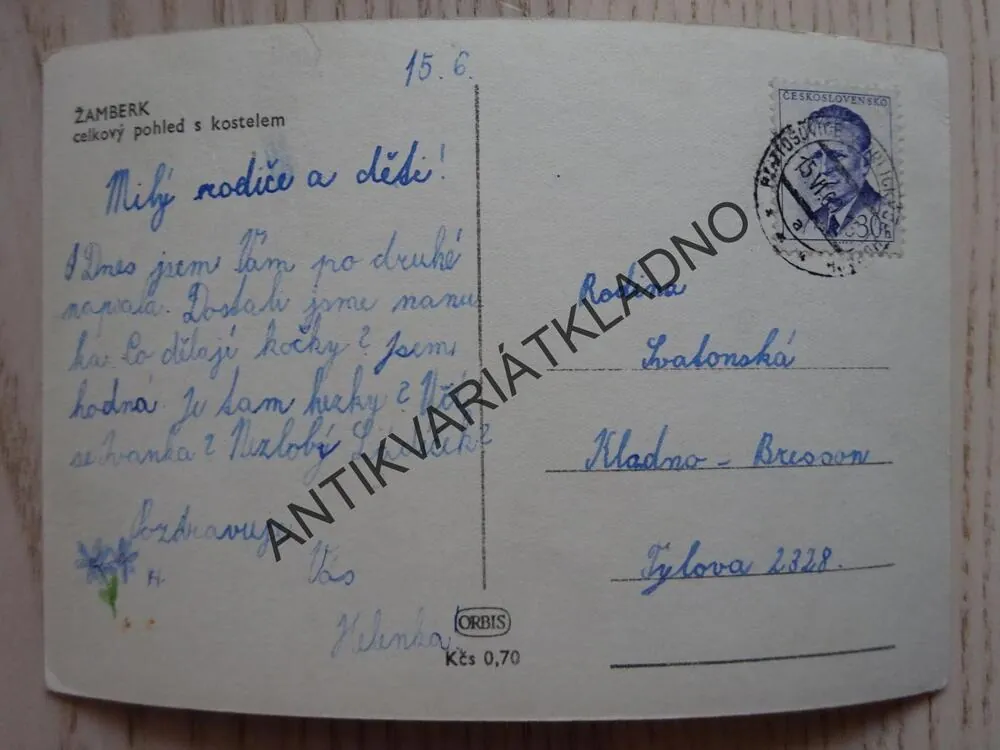 15. 6.
ŽAMBERK
celkový pohled s kostelem
Milý rodiče a děti!
Dnes jsem Vám po druhé
napsala. Dostali jsme nanu
ka. Co dělají kočky? Jsem
hodná. Je tam hezky? 
se Ivanka? Nezlobý
Pozdravuj
Vás
Helenka.
ORBIS
Kčs 0,70
ČESKOSLOVENSKO
30h
15.VI.6
a
Rodina
Svatonská
Kladno - Bresson
Tylova 2328.
ANTIKVARIÁTKLADNO